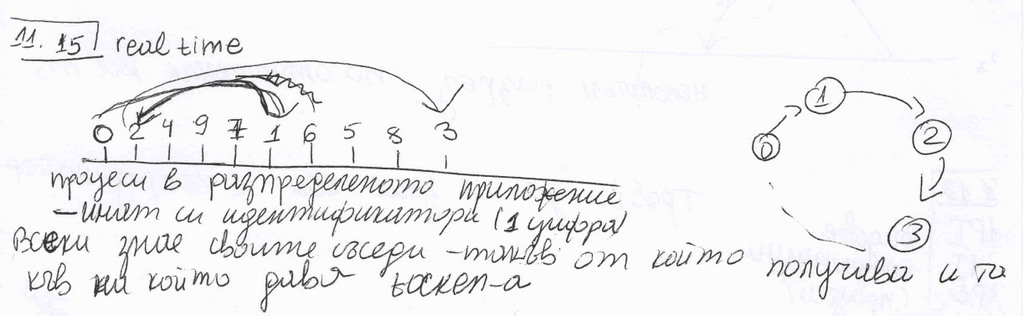 11.15 real time
0 2 4 9 7 1 6 5 8 3
0 1 2 3
процеси в разпределеното приложение
- имат си идентификатора (1 цифра)
Всеки знае своите съседи - такъв от който получава и та
къв на който дава токен-а